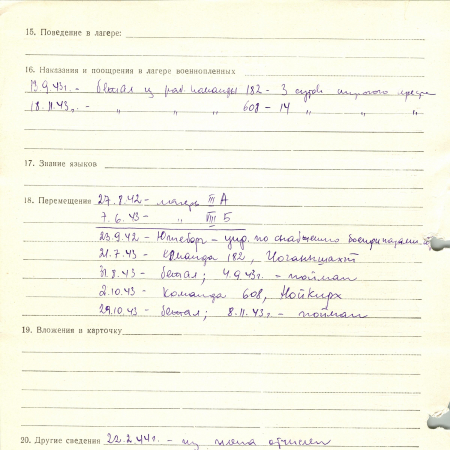 15. Поведение в лагере:
16. Наказания и поощрения в лагере военнопленных
13.9.43г. - бежал из раб. команды 182 - 3 суток строгого ареста
18.11.43г. - " " " 608 - 14 " " "
17. Знание языков
18. Перемещения 27.8.42 - лагерь III А
7.6.43 - " VIII Б
23.9.42 - Ютеборг - упр. по снабжению боеприпасами
21.7.43 - команда 182, Иоганншахт
31.8.43 - бежал; 4.9.43г. - пойман
2.10.43 - команда 608, Нойкирх
29.10.43 - бежал; 8.11.43г. - пойман
19. Вложения в карточку
20. Другие сведения 22.2.44г. - из плена отчислен